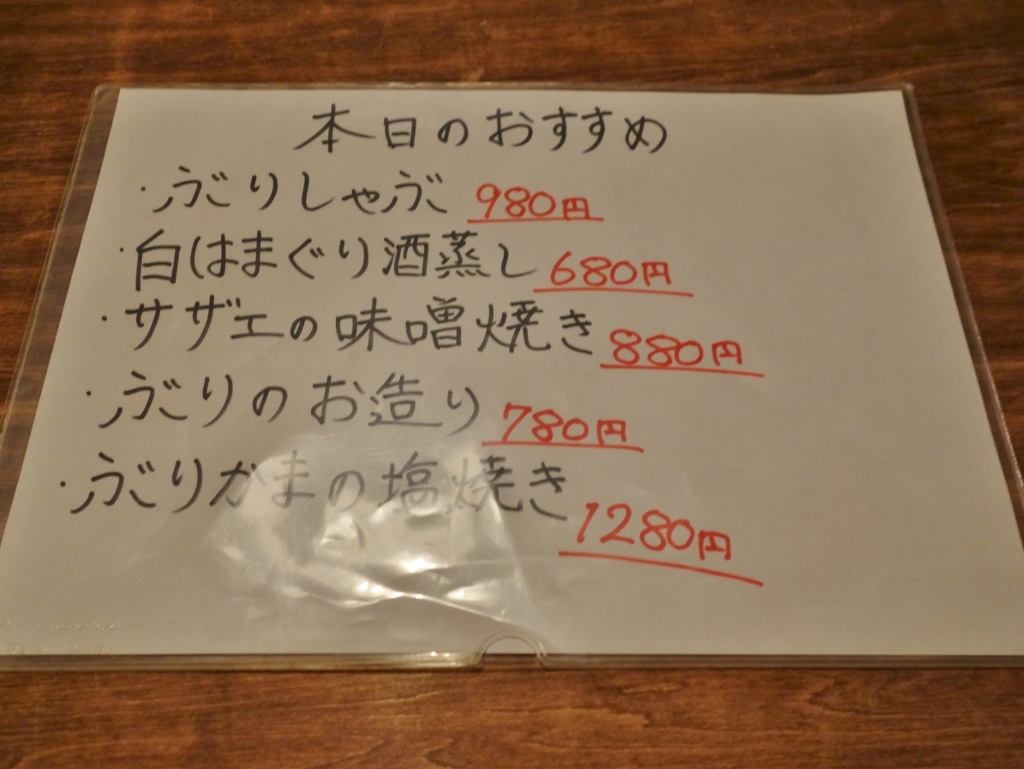 本日のおすすめ
・ぶりしゃぶ 980円
・白はまぐり酒蒸し 680円
・サザエの味噌焼き 880円
・ぶりのお造り 780円
・ぶりかまの塩焼き 1280円